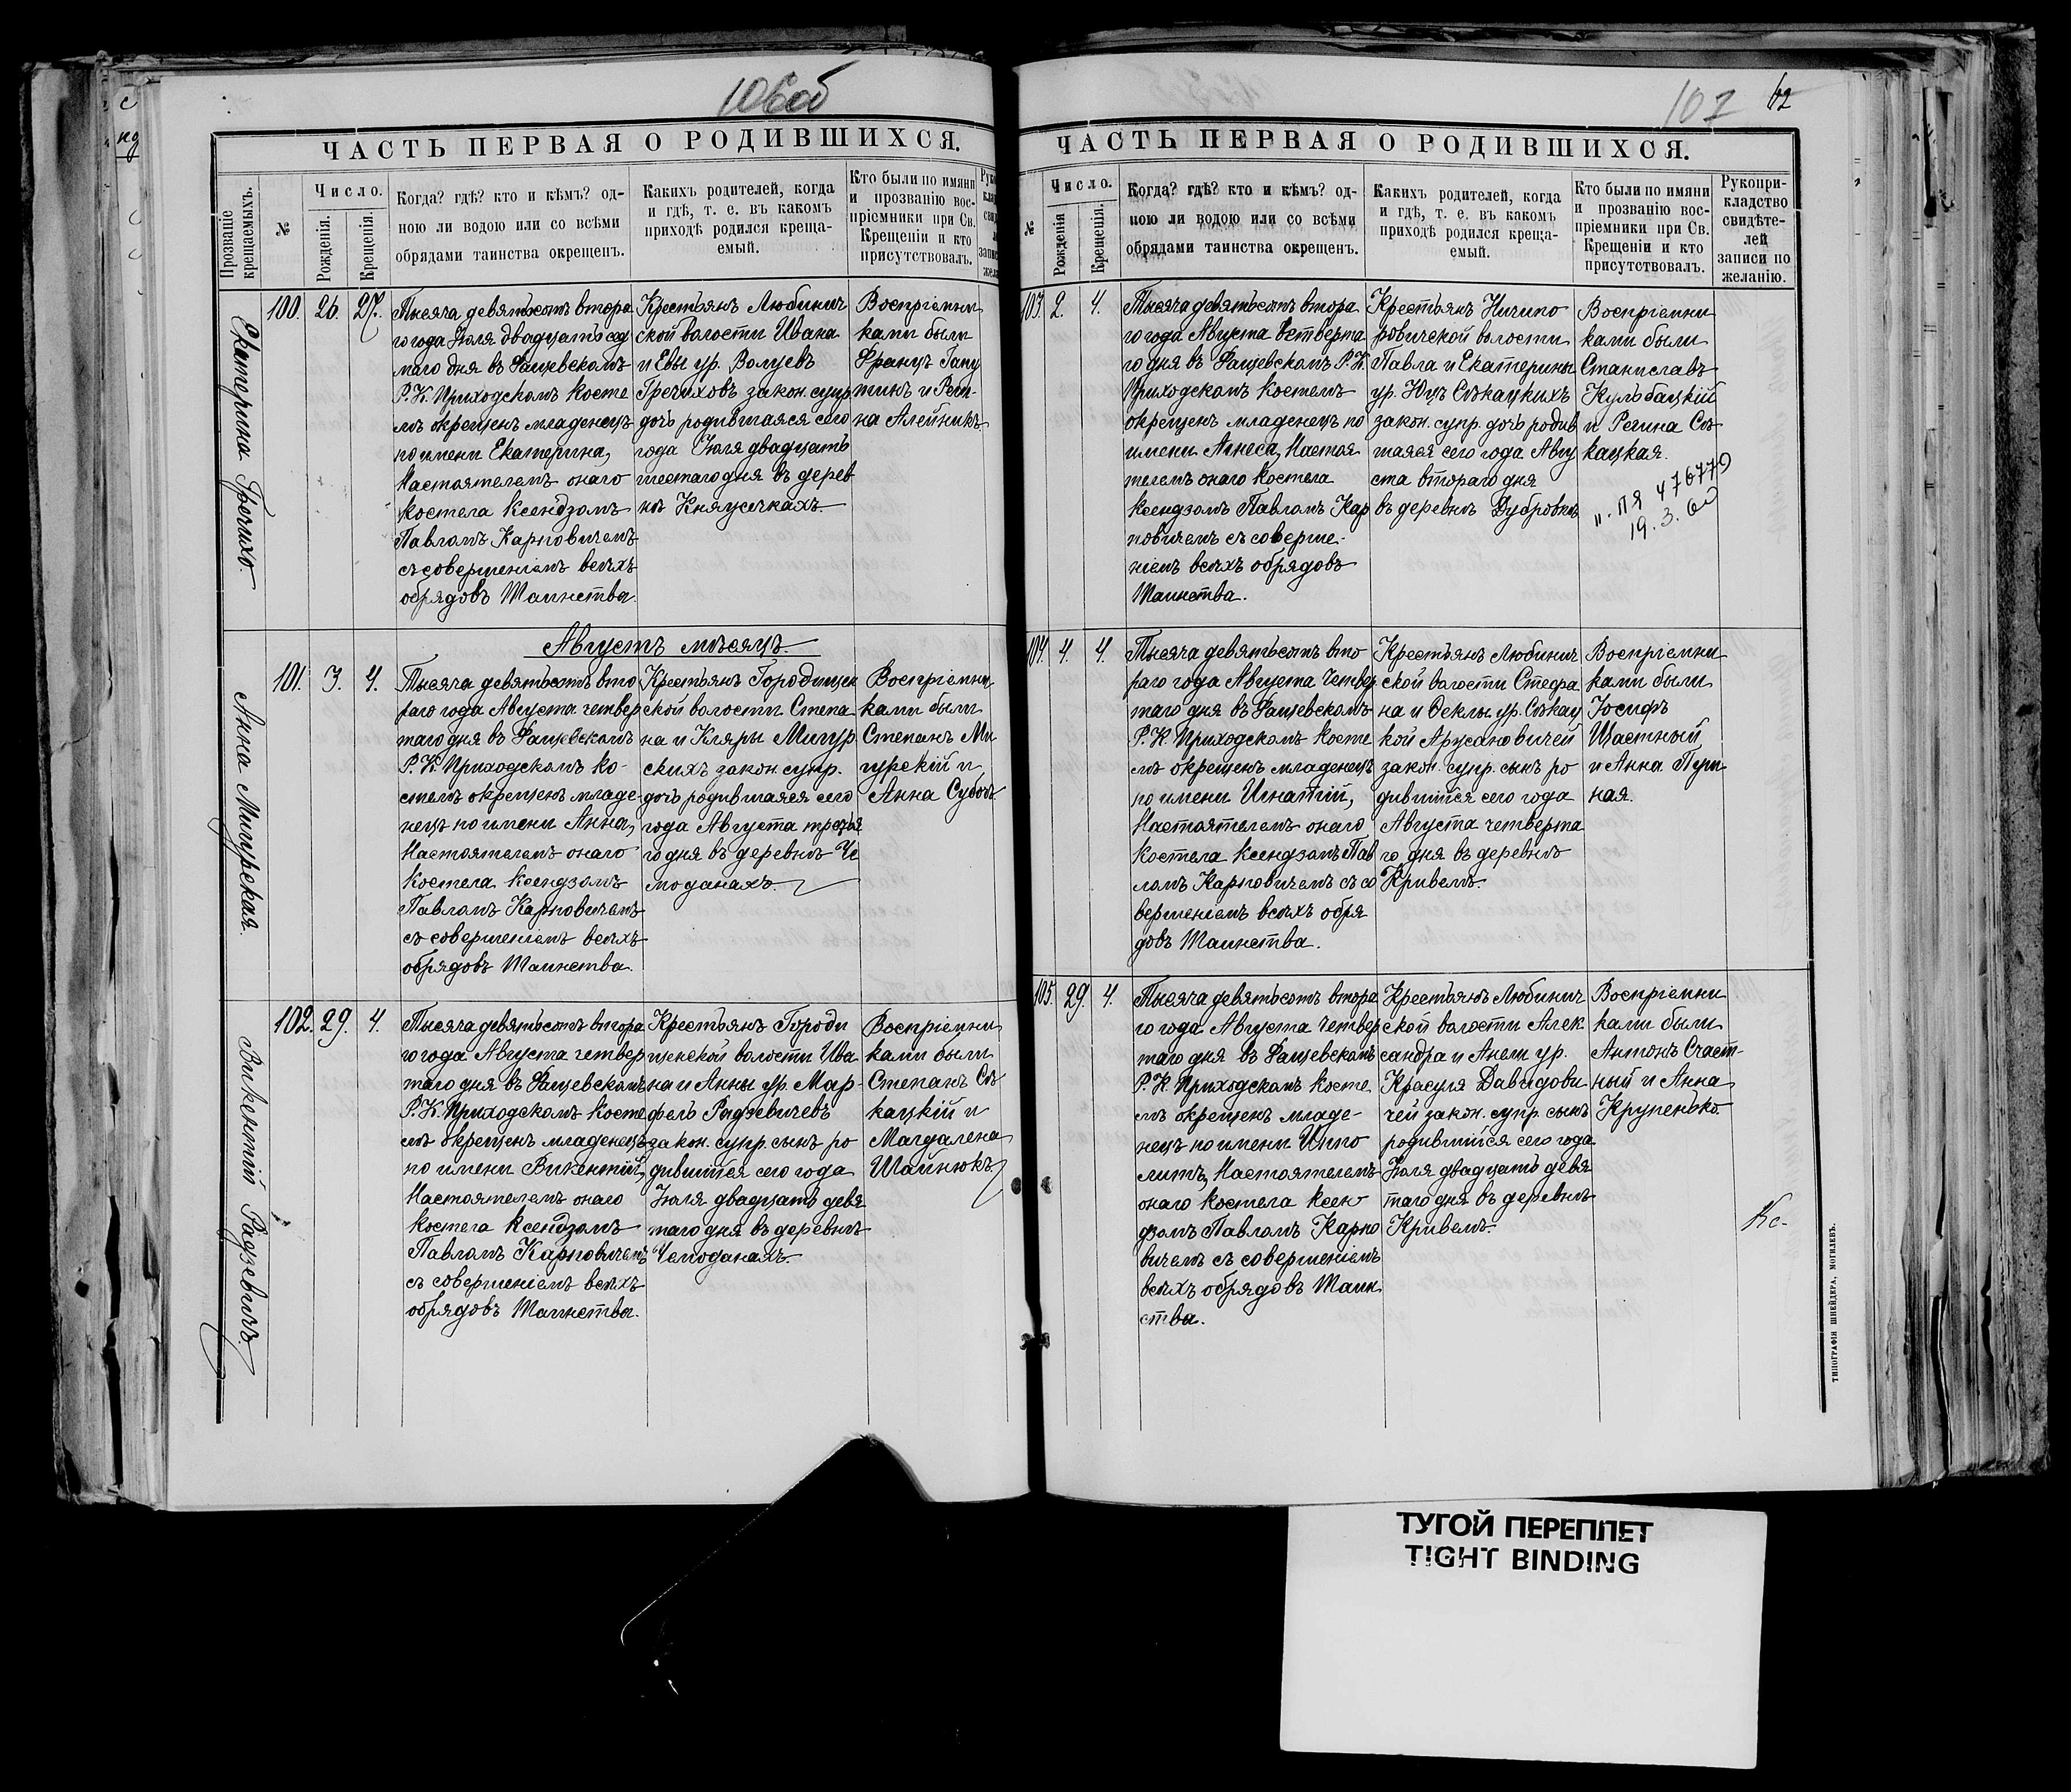 106 об
ЧАСТЬ ПЕРВАЯ О РОДИВШИХСЯ.
Прозваніе крещаемыхъ.
№
Число.
Рожденія.
Крещенія.
Когда? гдѣ? кто и кѣмъ? од-
ною ли водою или со всѣми
обрядами таинства окрещенъ.
Какихъ родителей, когда
и гдѣ, т. е. въ какомъ
приходѣ родился креща-
емый.
Кто были по имяни
и прозванію вос-
пріемники при Св.
Крещеніи и кто
присутствовалъ.
Екатерина Гречихо.
100. 26. 27.
Тысяча девятьсотъ втора
го года Іюля двадцать сед
маго дня въ Фащевскомъ
Р. К. Приходскомъ косте
лѣ окрещенъ младенецъ
по имени Екатерина,
Настоятелемъ онаго
костела Ксендзомъ
Павломъ Карповичемъ
съ совершеніемъ всѣхъ
обрядовъ Таинства.
Крестьянъ Любинич
ской волости Ивана
и Евы ур. Волуевъ
Гречиховъ закон. супр.
дочь родившаяся сего
года Іюля двадцать
шестаго дня въ дерев
нѣ Княжичкахъ
Воспріемни
ками были
Францъ Гапу
тинъ и Реги-
на Алейникъ
Августъ мѣсяцъ.
Анна Мигурская.
101. 3. 4.
Тысяча девятьсотъ вто
раго года Августа четвер
таго дня въ Фащевскомъ
Р. К. Приходскомъ ко-
стелѣ окрещенъ младе-
нецъ по имени Анна,
Настоятелемъ онаго
костела Ксендзомъ
Павломъ Карповичемъ
съ совершеніемъ всѣхъ
обрядовъ Таинства.
Крестьянъ Городищен
ской волости Степа
на и Кляры Мигур
скихъ закон. супр.
дочь родившаяся сего
года Августа третья
го дня въ деревнѣ Че
моданахъ.
Воспріемни
ками были
Степанъ Ми
гурскій и
Анна
Викентій Радзевичъ.
102. 29. 4.
Тысяча девятьсотъ втора
го года Августа четвер
таго дня въ Фащевскомъ
Р. К. Приходскомъ косте
лѣ окрещенъ младенецъ
по имени Викентій,
Настоятелемъ онаго
костела Ксендзомъ
Павломъ Карповичемъ
съ совершеніемъ всѣхъ
обрядовъ Таинства.
Крестьянъ Городи
щенской волости Ива
на и Анны ур. Мар-
фель Радзевичевъ
закон. супр. сынъ ро
дившійся сего года
Іюля двадцать девя
таго дня въ деревнѣ
Чемоданахъ.
Воспріемни
ками были
Степанъ Сѣ
кацкій и
Магдалена
Шайнюкъ
107 62
ЧАСТЬ ПЕРВАЯ О РОДИВШИХСЯ.
№
Число.
Рожденія
Крещенія.
Когда? гдѣ? кто и кѣмъ? од-
ною ли водою или со всѣми
обрядами таинства окрещенъ.
Какихъ родителей, когда
и гдѣ, т. е. въ какомъ
приходѣ родился креща-
емый.
Кто были по имяни
и прозванію вос-
пріемники при Св.
Крещеніи и кто
присутствовалъ.
Рукопри-
кладство
свидѣте-
лей
записи по
желанію.
103. 2. 4.
Тысяча девятьсотъ втора
го года Августа четверта
го дня въ Фащевскомъ Р. К.
Приходскомъ костелѣ
окрещенъ младенецъ по
имени Агнеса, Настоя
телемъ онаго костела
Ксендзомъ Павломъ Кар
повичемъ съ соверше-
ніемъ всѣхъ обрядовъ
Таинства.
Крестьянъ Ничипо
ровичской волости
Павла и Екатерины
ур. Юцъ Сѣкацкихъ
закон. супр. дочь родив
шаяся сего года Авгу
ста втораго дня
въ деревнѣ Дубровкѣ
Воспріемни
ками были
Станиславъ
Кульбацкій
и Регина Сѣ
кацкая.
п. ПЯ 476779
19. 3. 60
104. 4. 4.
Тысяча девятьсотъ вто
раго года Августа Четвер
таго дня въ Фащевскомъ
Р. К. Приходскомъ косте
лѣ окрещенъ младенецъ
по имени Игнатій,
Настоятелемъ онаго
костела Ксендзомъ Пав
ломъ Карповичемъ съ со
вершеніемъ всѣхъ обря
довъ Таинства.
Крестьянъ Любинич
ской волости Стефа
на и Ѳеклы ур. Сѣкац
кой Арусановичей
закон. супр. сынъ ро
дившійся сего года
Августа четверта
го дня въ деревнѣ
Кривель.
Воспріемни
ками были
Іосифъ
Щастный
и Анна
ная.
105. 29. 4.
Тысяча девятьсотъ втора
го года Августа Четвер
таго дня въ Фащевскомъ
Р. К. Приходскомъ косте
лѣ окрещенъ младе-
нецъ по имени Иппо
литъ, Настоятелемъ
онаго костела Ксен
дзомъ Павломъ Карпо
вичемъ съ совершеніемъ
всѣхъ обрядовъ Таин
ства.
Крестьянъ Любинич
ской волости Алек
сандра и Анели ур.
Красуля Давидови
чей закон. супр. сынъ
родившійся сего года
Іюля двадцать девя
таго дня въ деревнѣ
Кривель.
Воспріемни
ками были
Антонъ Счаст-
ный и Анна
Крупенько.
Кс.
ТИПОГРАФІЯ ШНЕЙДЕРА, МОГИЛЕВЪ.
ТУГОЙ ПЕРЕПЛЕТ
TIGHT BINDING